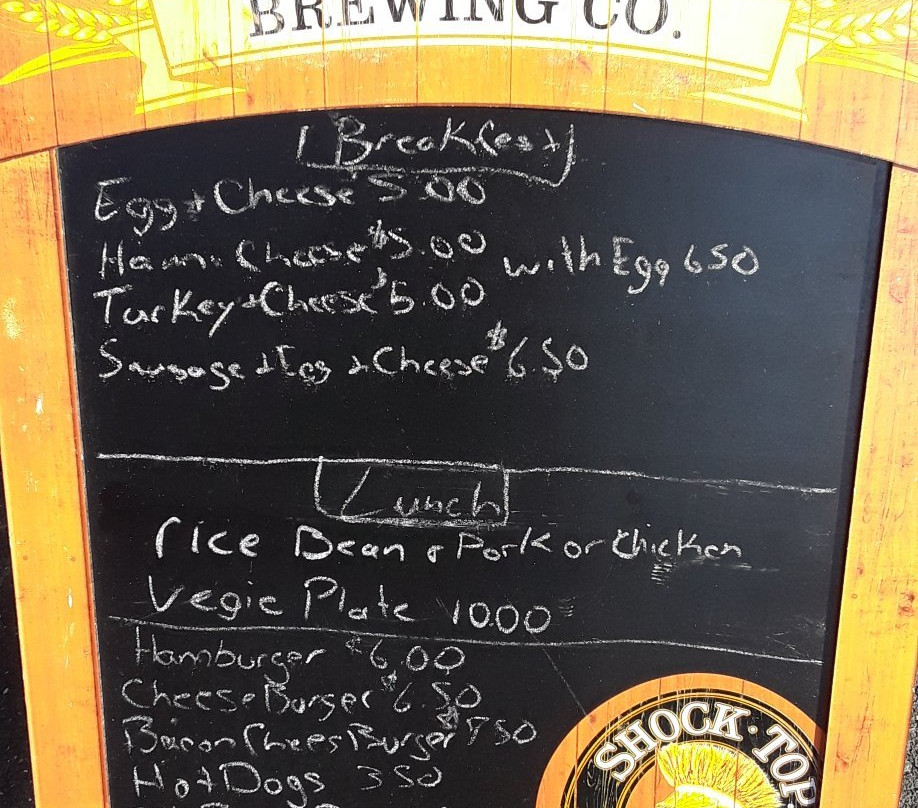 BREWING CO.
Breakfast
Egg + Cheese 5.00
Ham + Cheese $5.00 with Egg 650
Turkey + Cheese $5.00
Sausage + Egg + Cheese $6.50
Lunch
rice Bean & Pork or Chicken
Vegie Plate 1000
Hamburger $6.00
CheeseBurger $6 50
Bacon Chees Burger $ 750
Hot Dogs 350
SHOCK·TOP